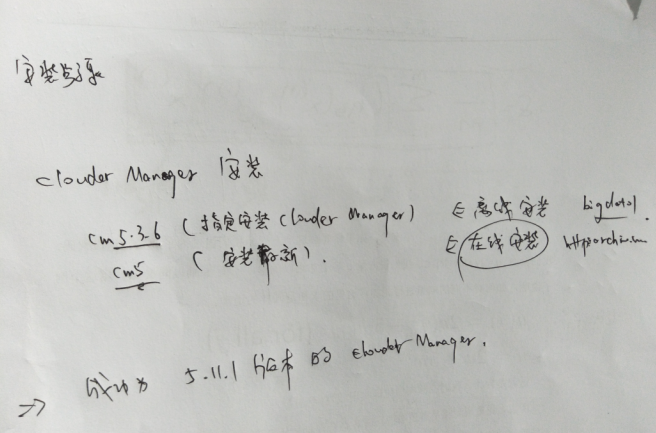 安装步骤
clouder Manager 安装
cm5.3.6 (指定安装 clouder Manager) 离线安装 bigdata1.
cm5 (安装最新). 在线安装
=> 成功为 5.11.1 版本的 clouder Manager.